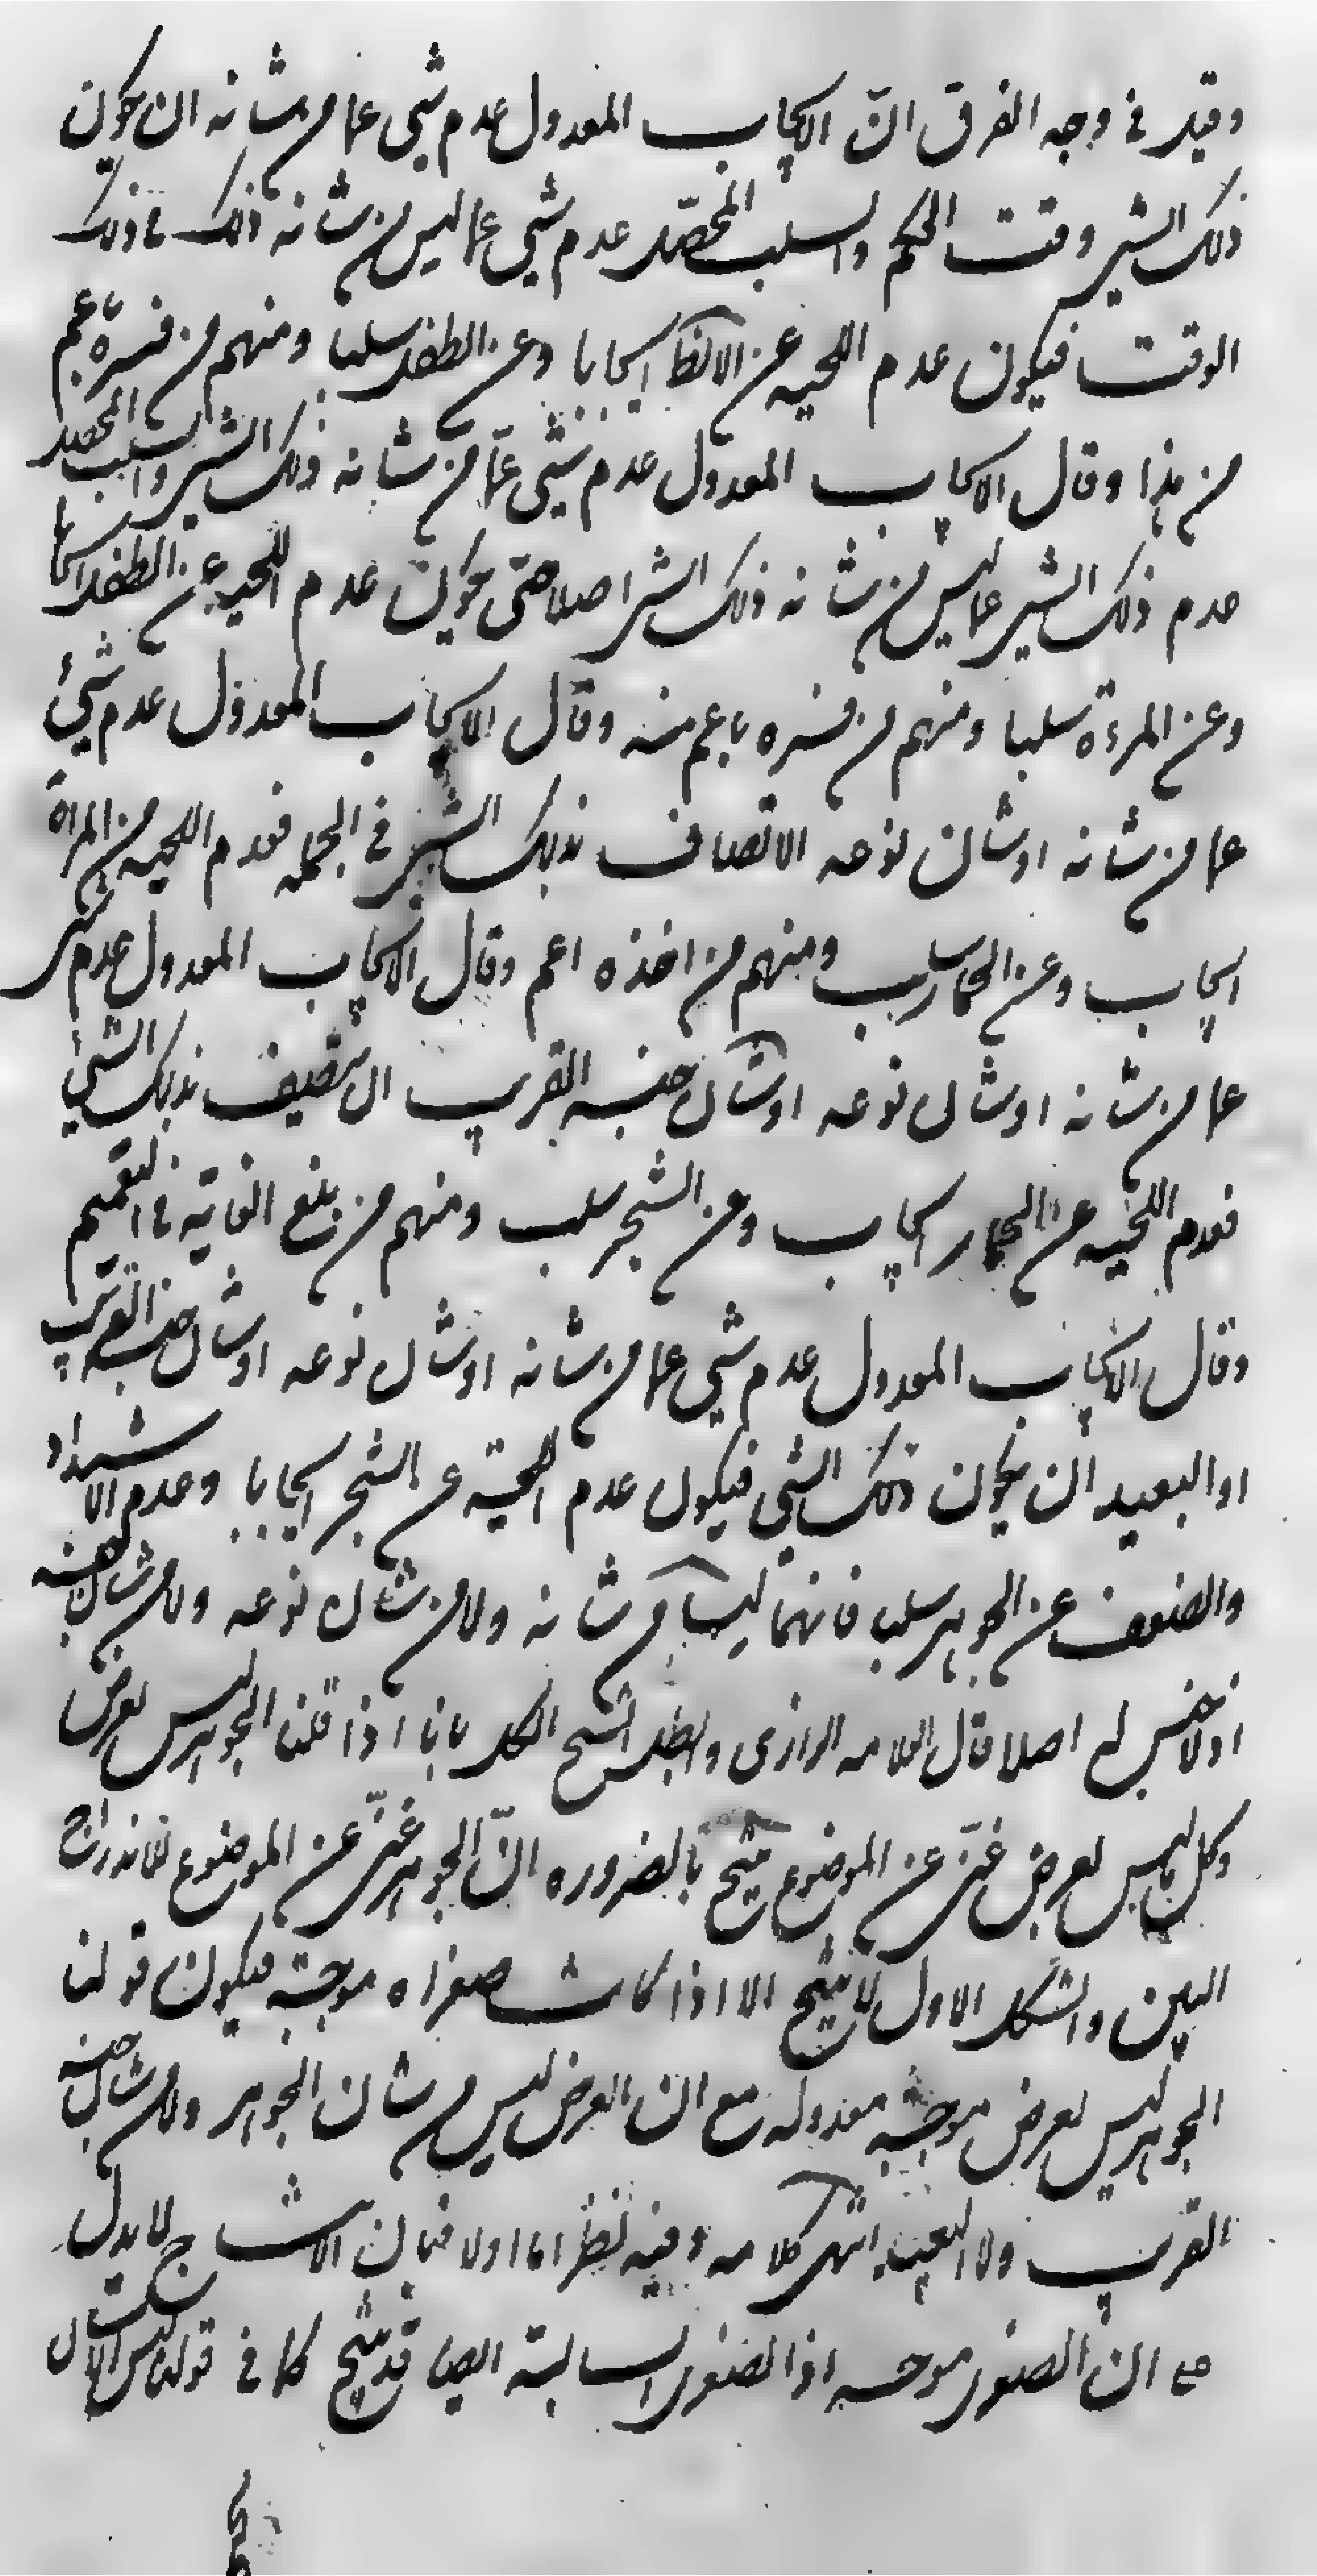 وقيل في وجه الفرق انّ الايجاب المعدول عدم شيء عما من شانه ان يكون
ذلك الشيء وقت الحكم والسلب المحصّل عدم شيء عما ليس من شانه ذلك في ذلك
الوقت فيكون عدم اللحيه عن الانط ايجابا وعن الطفل سلبا ومنهم من فسره باعم
من هذا وقال الايجاب المعدول عدم شيء عمّا من شانه ذلك الشيء والسلب المحصل
عدم ذلك الشيء عما ليس من شانه ذلك الشيء اصلا حتى يكون عدم اللحيه عن الطفل ايجابا
وعن المرءة سلبا ومنهم من فسره باعم منه وقال الايجاب المعدول عدم شيء
عما من شانه او شان نوعه الاتصاف بذلك الشيء في الجمله فعدم اللحيه عن المراة
ايجاب وعن الحمار سلب ومنهم من اخذه اعم وقال الايجاب المعدول عدم شيء
عما من شانه او شان نوعه او شان جنسه القريب ان يتصف بذلك الشيء
فعدم اللحيه عن الحمار ايجاب وعن الشجر سلب ومنهم من بلغ الغاية في التعميم
وقال الايجاب المعدول عدم شيء عما من شانه او شان نوعه او شان جنسه القريب
او البعيد ان يكون ذلك الشيء فيكون عدم اللحية عن الشجر ايجابا وعدم الاشتداد
والضعف عن الجوهر سلبا فانهما ليسا من شانه ولا من شان نوعه ولا من شان جنسه
اذ لا جنس له اصلا قال العلامه الرازى وابطل الشيخ الكل بانا اذا قلنا الجوهر ليس بعرض
وكل ما ليس بعرض غنىّ عن الموضوع ينتج بالضروره انّ الجوهر غنىّ عن الموضوع للاندراج
البين والشكل الاول لا ينتج الا اذا كانت صغراه موجبة فيكون قولنا
الجوهر ليس بعرض موجبة معدوله مع ان العرض ليس من شان الجوهر ولا من شان جنسه
القريب ولا البعيد انتهى كلامه وفيه نظر اما اولا فبان الانتاج لا يدل
على ان الصغرى موجبه اذ الصغرى السالبة ايضا قد ينتج كما في قولنا ليس الانسان